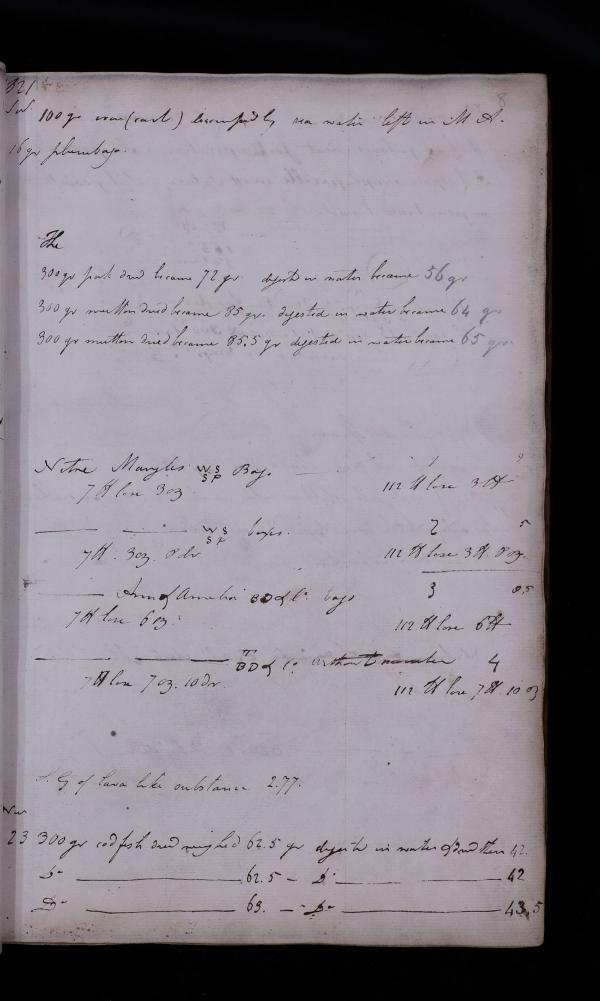 321
8
100 gr iron (cast) by sea water left in M A.
16 gr plumbago.
The
300 gr pork dried became 72 gr. digested in water became 56 gr
300 gr mutton dried became 85 gr. digested in water became 64 gr
300 gr mutton dried became 85.5 gr digested in water became 65 gr.
Nitre Mangles WS SP Bags 1 9
7 ℔ lose 3 oz 112 ℔ lose 3 ℔
WS SP boxes. 2 5
7 ℔. 3 oz. 8 dr 112 ℔ lose 3 ℔. 8 oz.
Ann & Amelia BD & Co. bags 3 8.5
7 ℔ lose 6 oz. 112 ℔ lose 6 ℔
BD & Co. without number 4
7 ℔ lose 7 oz. 10 dr. 112 ℔ lose 7 ℔ 10 oz
S. G of lava like substance 2.77.
Nov
23 300 gr codfish dried weighed 62.5 gr digested in water & dried then 42.
Do 62.5 - Do 42
Do 63. - Do 43.5